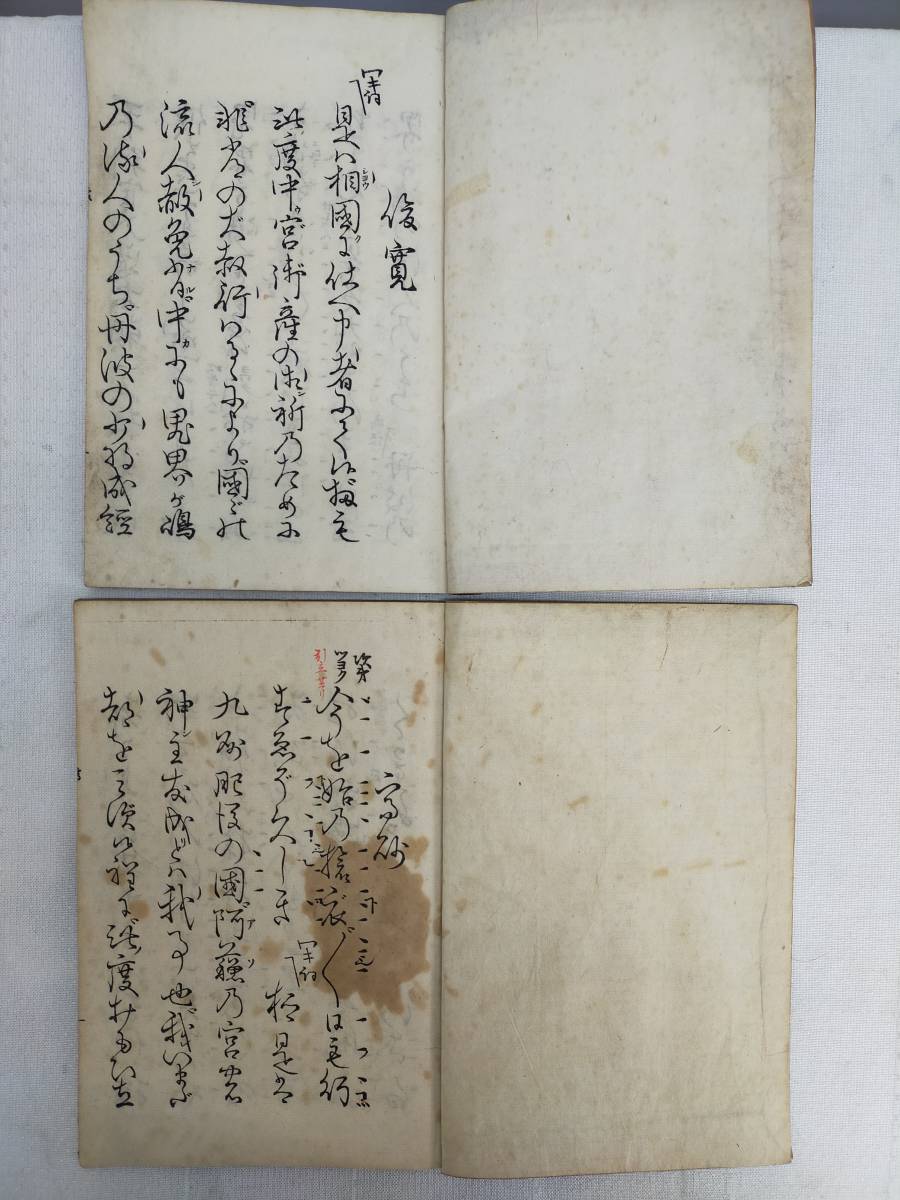 俊寛
ワキ詞
是ハ相國に仕へ申者にて候扨も
此度中宮御産の御祈乃ために
非常の大赦行ハるゝにより國々の
流人赦免ある中にも鬼界が嶋
乃流人のうち丹波の少将成経
高砂
次第
今を始乃旅衣〳〵日も行
すゑぞ久しき
ワキ詞
抑是は
九州肥後の國阿蘇乃宮の
神主友成とハ我事也我いまだ
都を見ず候程に此度おもひ立